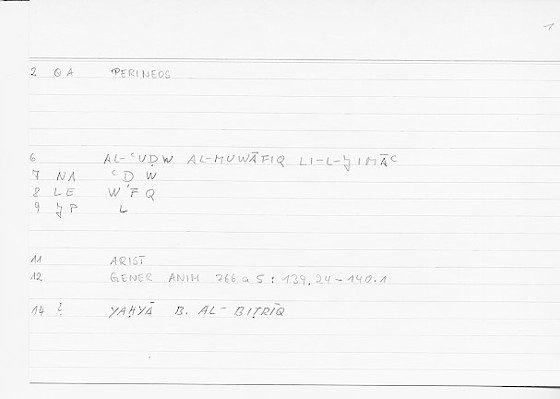 1
2 QA PERINEOS
6 AL-ʿUḌW AL-MUWĀFIQ LI-L-ǦIMĀʿ
7 NA ʿḌW
8 LE WFQ
9 ǦP L
11 ARIST
12 GENER ANIM 766 a 5 : 139,24-140.1
14 YAḤYĀ B. AL-BIṬRĪQ